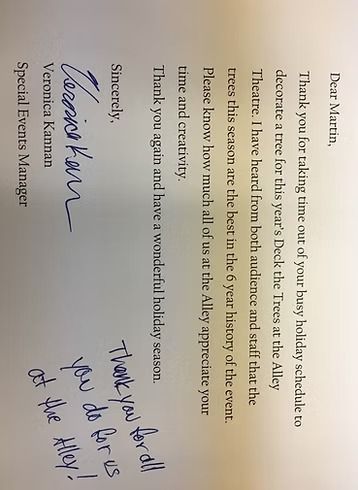 Dear Martin,
Thank you for taking time out of your busy holiday schedule to
decorate a tree for this year's Deck the Trees at the Alley
Theatre. I have heard from both audience and staff that the
trees this season are the best in the 6 year history of the event.
Please know how much all of us at the Alley appreciate your
time and creativity.
Thank you again and have a wonderful holiday season.
Sincerely,
Veronica Kannan
Veronica Kannan
Special Events Manager
Thank you for all
you do for us
at the Alley!